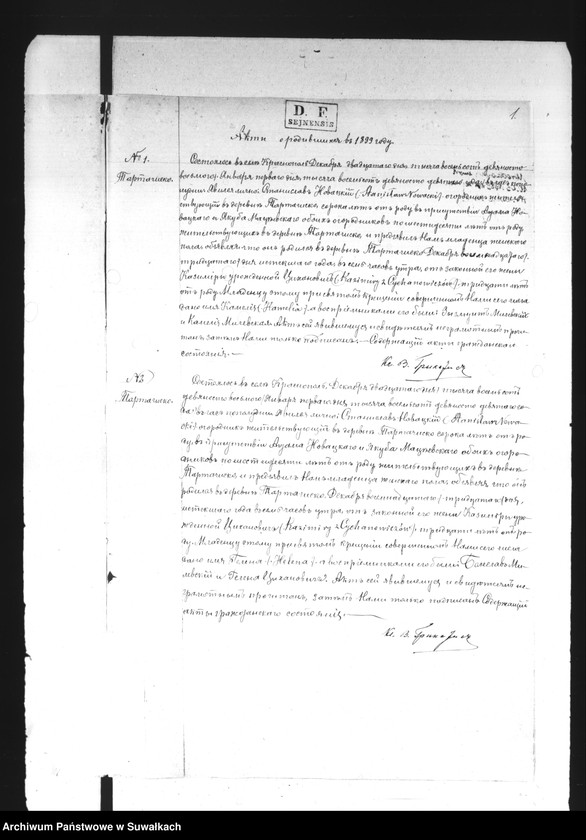 1.
D. F.
SEJNEŃSZ
Акты о родившихся въ 1899 году
№ 1.
Тартачиско.
Состоялось въ селѣ Краснополѣ Декабря двадцатаго дня тысяча восемьсотъ девяносто
восьмого Января перваго дня тысяча восемьсотъ девяносто девятаго
Явился лично Станиславъ Новацкій (Stanisław Nowacki) огородникъ жительствующій
въ деревнѣ Тартачиско сорока лѣтъ отъ роду въ присутствіи Адама Новацкаго
и Якуба обоихъ огородниковъ по шестидесяти лѣтъ отъ роду
жительствующихъ въ деревнѣ Тартачиско и предъявилъ Намъ младенца женскаго
пола объявляя что онъ родился въ деревнѣ Тартачиско Декабря
тридцатаго дня истекшаго года въ семь часовъ утра, отъ законной его жены
Казиміры урожденной Цихановичъ (Kazimiry z Cychanowiczów) тридцати лѣтъ
отъ роду. Младенцу этому при святомъ Крещеніи совершенномъ Нами сего числа
дано имя Камилія (Kamelia), а воспріемниками его были
и Камилія Милевская. Актъ сей явившемуся и свидѣтелямъ неграмотнымъ
прочитанъ, затѣмъ Нами только подписанъ. Содержащій акты гражданскаго
состоянія.
Кс. В.
№ 2
Тартачиско.
Состоялось въ селѣ Краснополь, Декабря двадцатаго дня тысяча восемьсотъ
девяносто восьмого Января перваго дня тысяча восемьсотъ девяносто девятаго года
въ часъ пополудни. Явился лично Станиславъ Новацкій (Stanisław Nowacki)
огородникъ жительствующій въ деревнѣ Тартачиско сорока лѣтъ отъ роду
въ присутствіи Адама Новацкаго и Якуба обоихъ огородниковъ
по шестидесяти лѣтъ отъ роду жительствующихъ въ деревнѣ
Тартачиско и предъявилъ Намъ младенца женскаго пола объявляя что онъ
родился въ деревнѣ Тартачиско Декабря
истекшаго года восемь часовъ утра, отъ законной его жены Казиміры урожденной
Цихановичъ (Kazimiry z Cychanowiczów) тридцати лѣтъ отъ роду.
Младенцу этому при святомъ Крещеніи совершенномъ Нами сего числа
дано имя Гелена (Helena), а воспріемниками его были Болеславъ
Милевскій и Гелена Цихановичъ. Актъ сей явившемуся и свидѣтелямъ
неграмотнымъ прочитанъ, затѣмъ Нами только подписанъ. Содержащій
акты гражданскаго состоянія.
Кс. В.
Archiwum Państwowe w Suwałkach